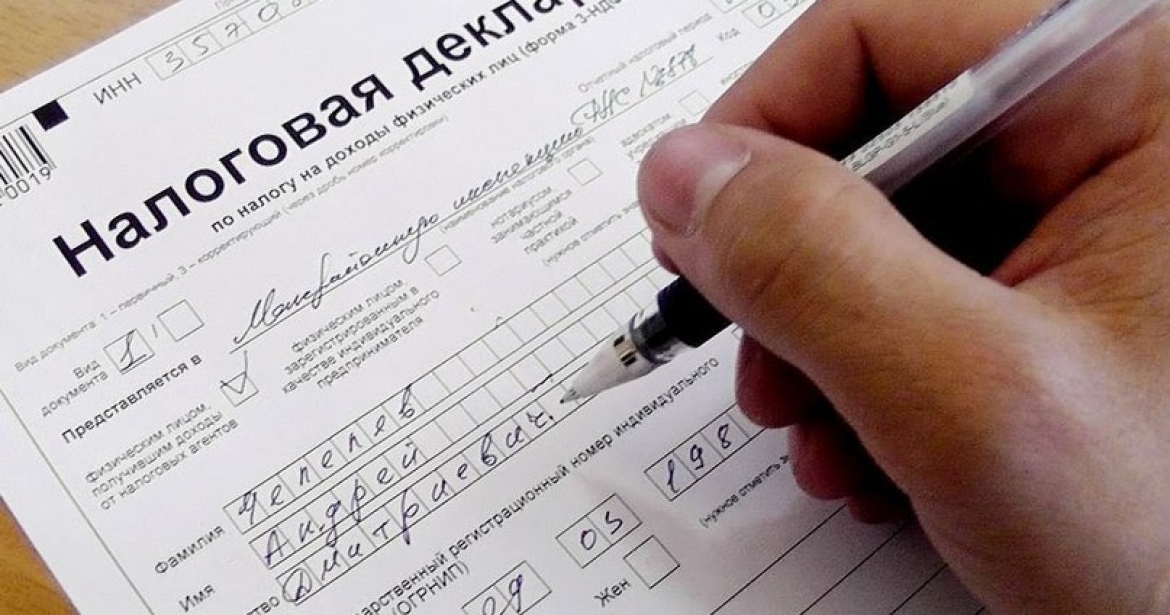 ИНН 3570
Налоговая
по налогу на доходы физических лиц (форма 3-НД
Отчетный налоговый период
Код 03
0019
Вид документа: 1 – первичный, 3 – корректирующий (через дробь номер корректировки)
Вид документа 1 /
Представляется в Межрайонную инспекцию
(наименование налогового органа)
физическим лицом, получившим доходы от налоговых агентов
физическим лицом, зарегистрированным в качестве индивидуального предпринимателя
нотариусом, занимающимся частной практикой
адвокатом
(нужное отметить
Фамилия Чепелев
Имя Андрей
ство Дмитриевич
арственный регистрационный номер индивидуального
(ОГРНИП)
09 03 198
Жен
(нужное отметить